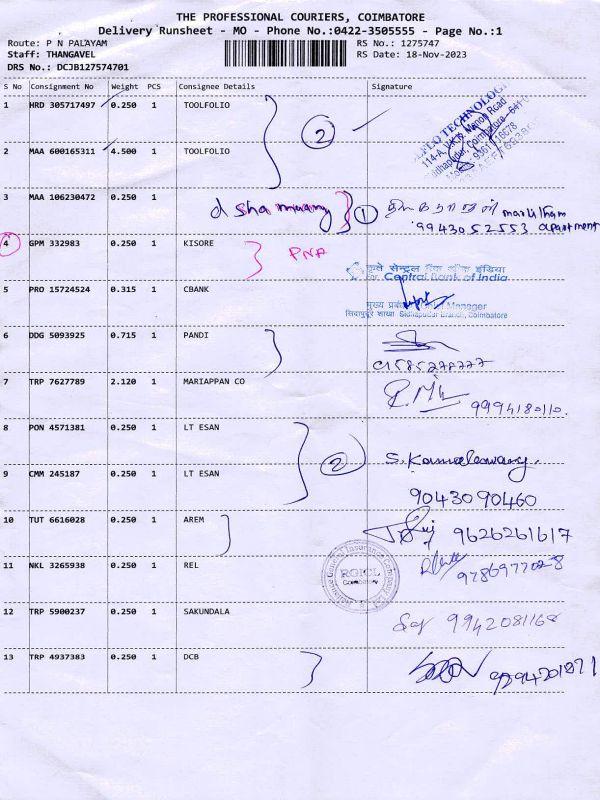 THE PROFESSIONAL COURIERS, COIMBATORE
Delivery Runsheet - MO - Phone No.:0422-3505555 - Page No.:1
Route: P N PALAYAM RS No.: 1275747
Staff: THANGAVEL RS Date: 18-Nov-2023
DRS No.: DCJB127574701
S No Consignment No Weight PCS Consignee Details Signature
1 HRD 305717497 0.250 1 TOOLFOLIO
2
2 MAA 600165311 4.500 1 TOOLFOLIO
3 MAA 106230472 0.250 1
1
9943052553 apartment
4 GPM 332983 0.250 1 KISORE
PNA
कृते सेन्ट्रल बैंक ऑफ इंडिया
For Central Bank of India
5 PRO 15724524 0.315 1 CBANK
Manager
Sidhapudur Branch, Coimbatore
6 DDG 5093925 0.715 1 PANDI
7 TRP 7627789 2.120 1 MARIAPPAN CO
9994180110.
8 PON 4571381 0.250 1 LT ESAN
2
9 CMM 245187 0.250 1 LT ESAN
9043090460
10 TUT 6616028 0.250 1 AREM
9626261617
11 NKL 3265938 0.250 1 REL
RGICL
Coimbatore
9786977028
12 TRP 5900237 0.250 1 SAKUNDALA
9942081168
13 TRP 4937383 0.250 1 DCB